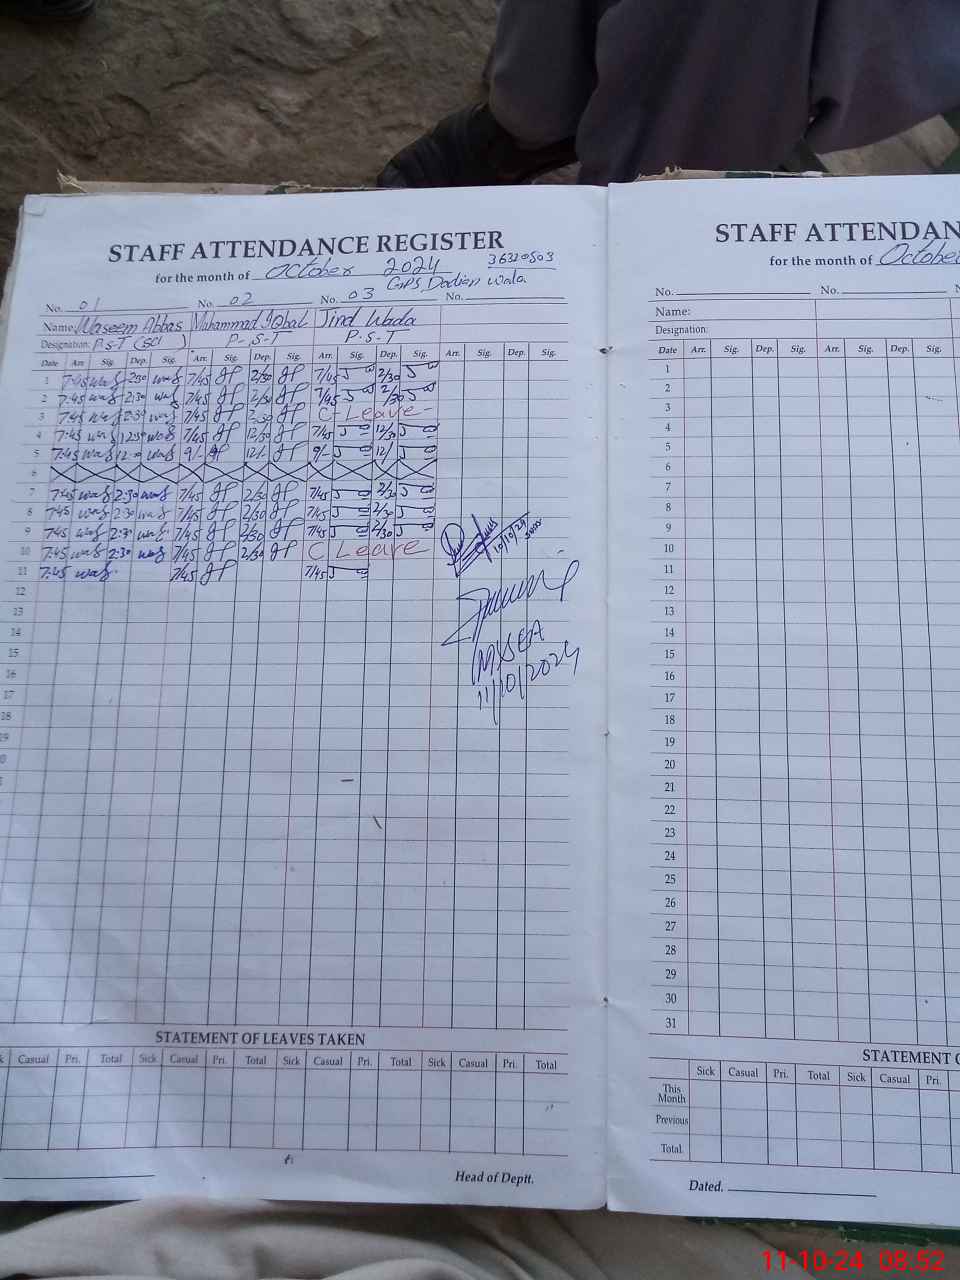 STAFF ATTENDANCE REGISTER
for the month of October 2024 36320503
GPS, Dadian wala
No. 01 No. 02 No. 03 No.
Name: Waseem Abbas Muhammad Iqbal Jind Wada
Designation: P.S.T (SCI) P.S.T P.S.T
Date Arr. Sig. Dep. Sig. Arr. Sig. Dep. Sig. Arr. Sig. Dep. Sig. Arr. Sig. Dep. Sig.
1 7:45 2:30 7/45 2/30 7/45 2/30
2 7:45 2:30 7/45 2/30 7/45 2/30
3 7:45 2:30 7/45 2:30 C-Leave-
4 7:45 12:30 7/45 12/30 7/45 12/30
5 7:45 12:00 9/- 12/- 9/- 12/
6
7 7:45 2:30 7/45 2/30 7/45 2/30
8 7:45 2:30 7/45 2/30 7/45 2/30
9 7:45 2:30 7/45 2/30 7/45 2/30
10 7:45 2:30 7/45 2/30 C Leave
11 7:45 7/45 7/45
10/10/24
12
13
14
15
16
17
18
11/10/2024
STATEMENT OF LEAVES TAKEN
Casual Pri. Total Sick Casual Pri. Total Sick Casual Pri. Total Sick Casual Pri. Total
Head of Deptt.
STAFF ATTENDAN
for the month of October
No. No.
Name:
Designation:
Date Arr. Sig. Dep. Sig. Arr. Sig. Dep. Sig.
1
2
3
4
5
6
7
8
9
10
11
12
13
14
15
16
17
18
19
20
21
22
23
24
25
26
27
28
29
30
31
STATEMENT O
Sick Casual Pri. Total Sick Casual Pri.
This Month
Previous
Total
Dated.
11-10-24 08:52